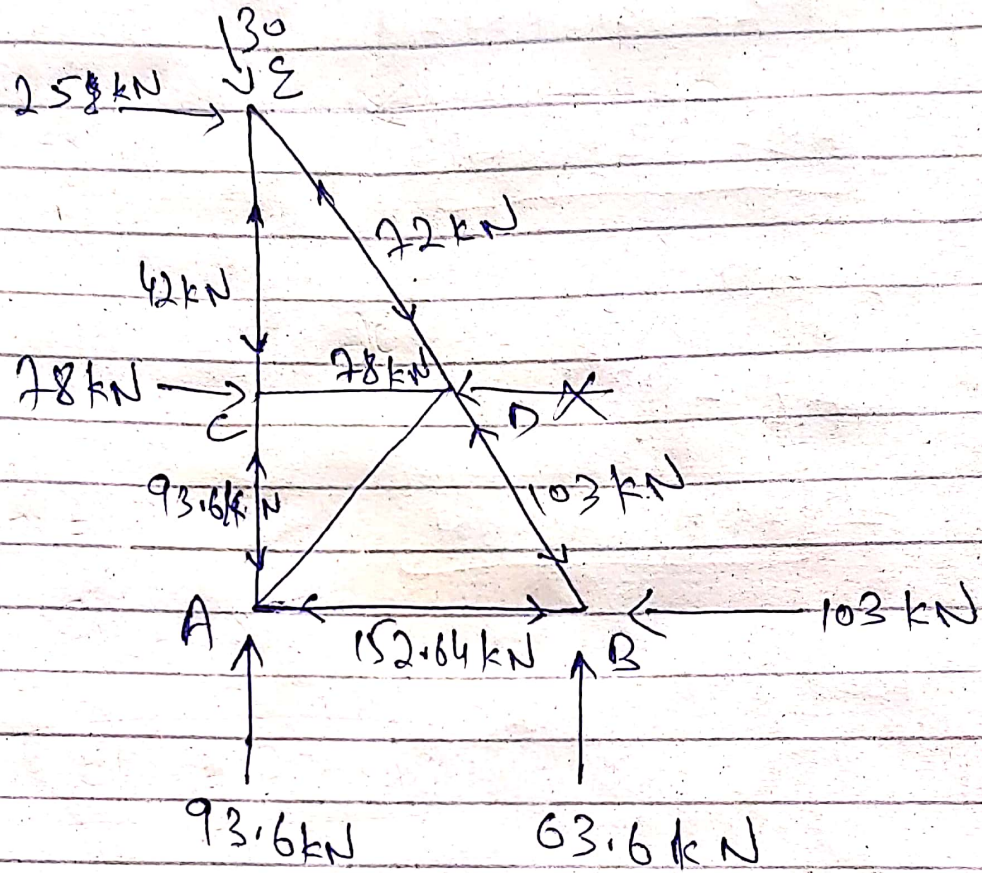 30
E
25 kN
72 kN
42kN
78kN
78kN
C
D
93.6kN
103 kN
A
152.64kN
B
103 kN
93.6kN
63.6kN